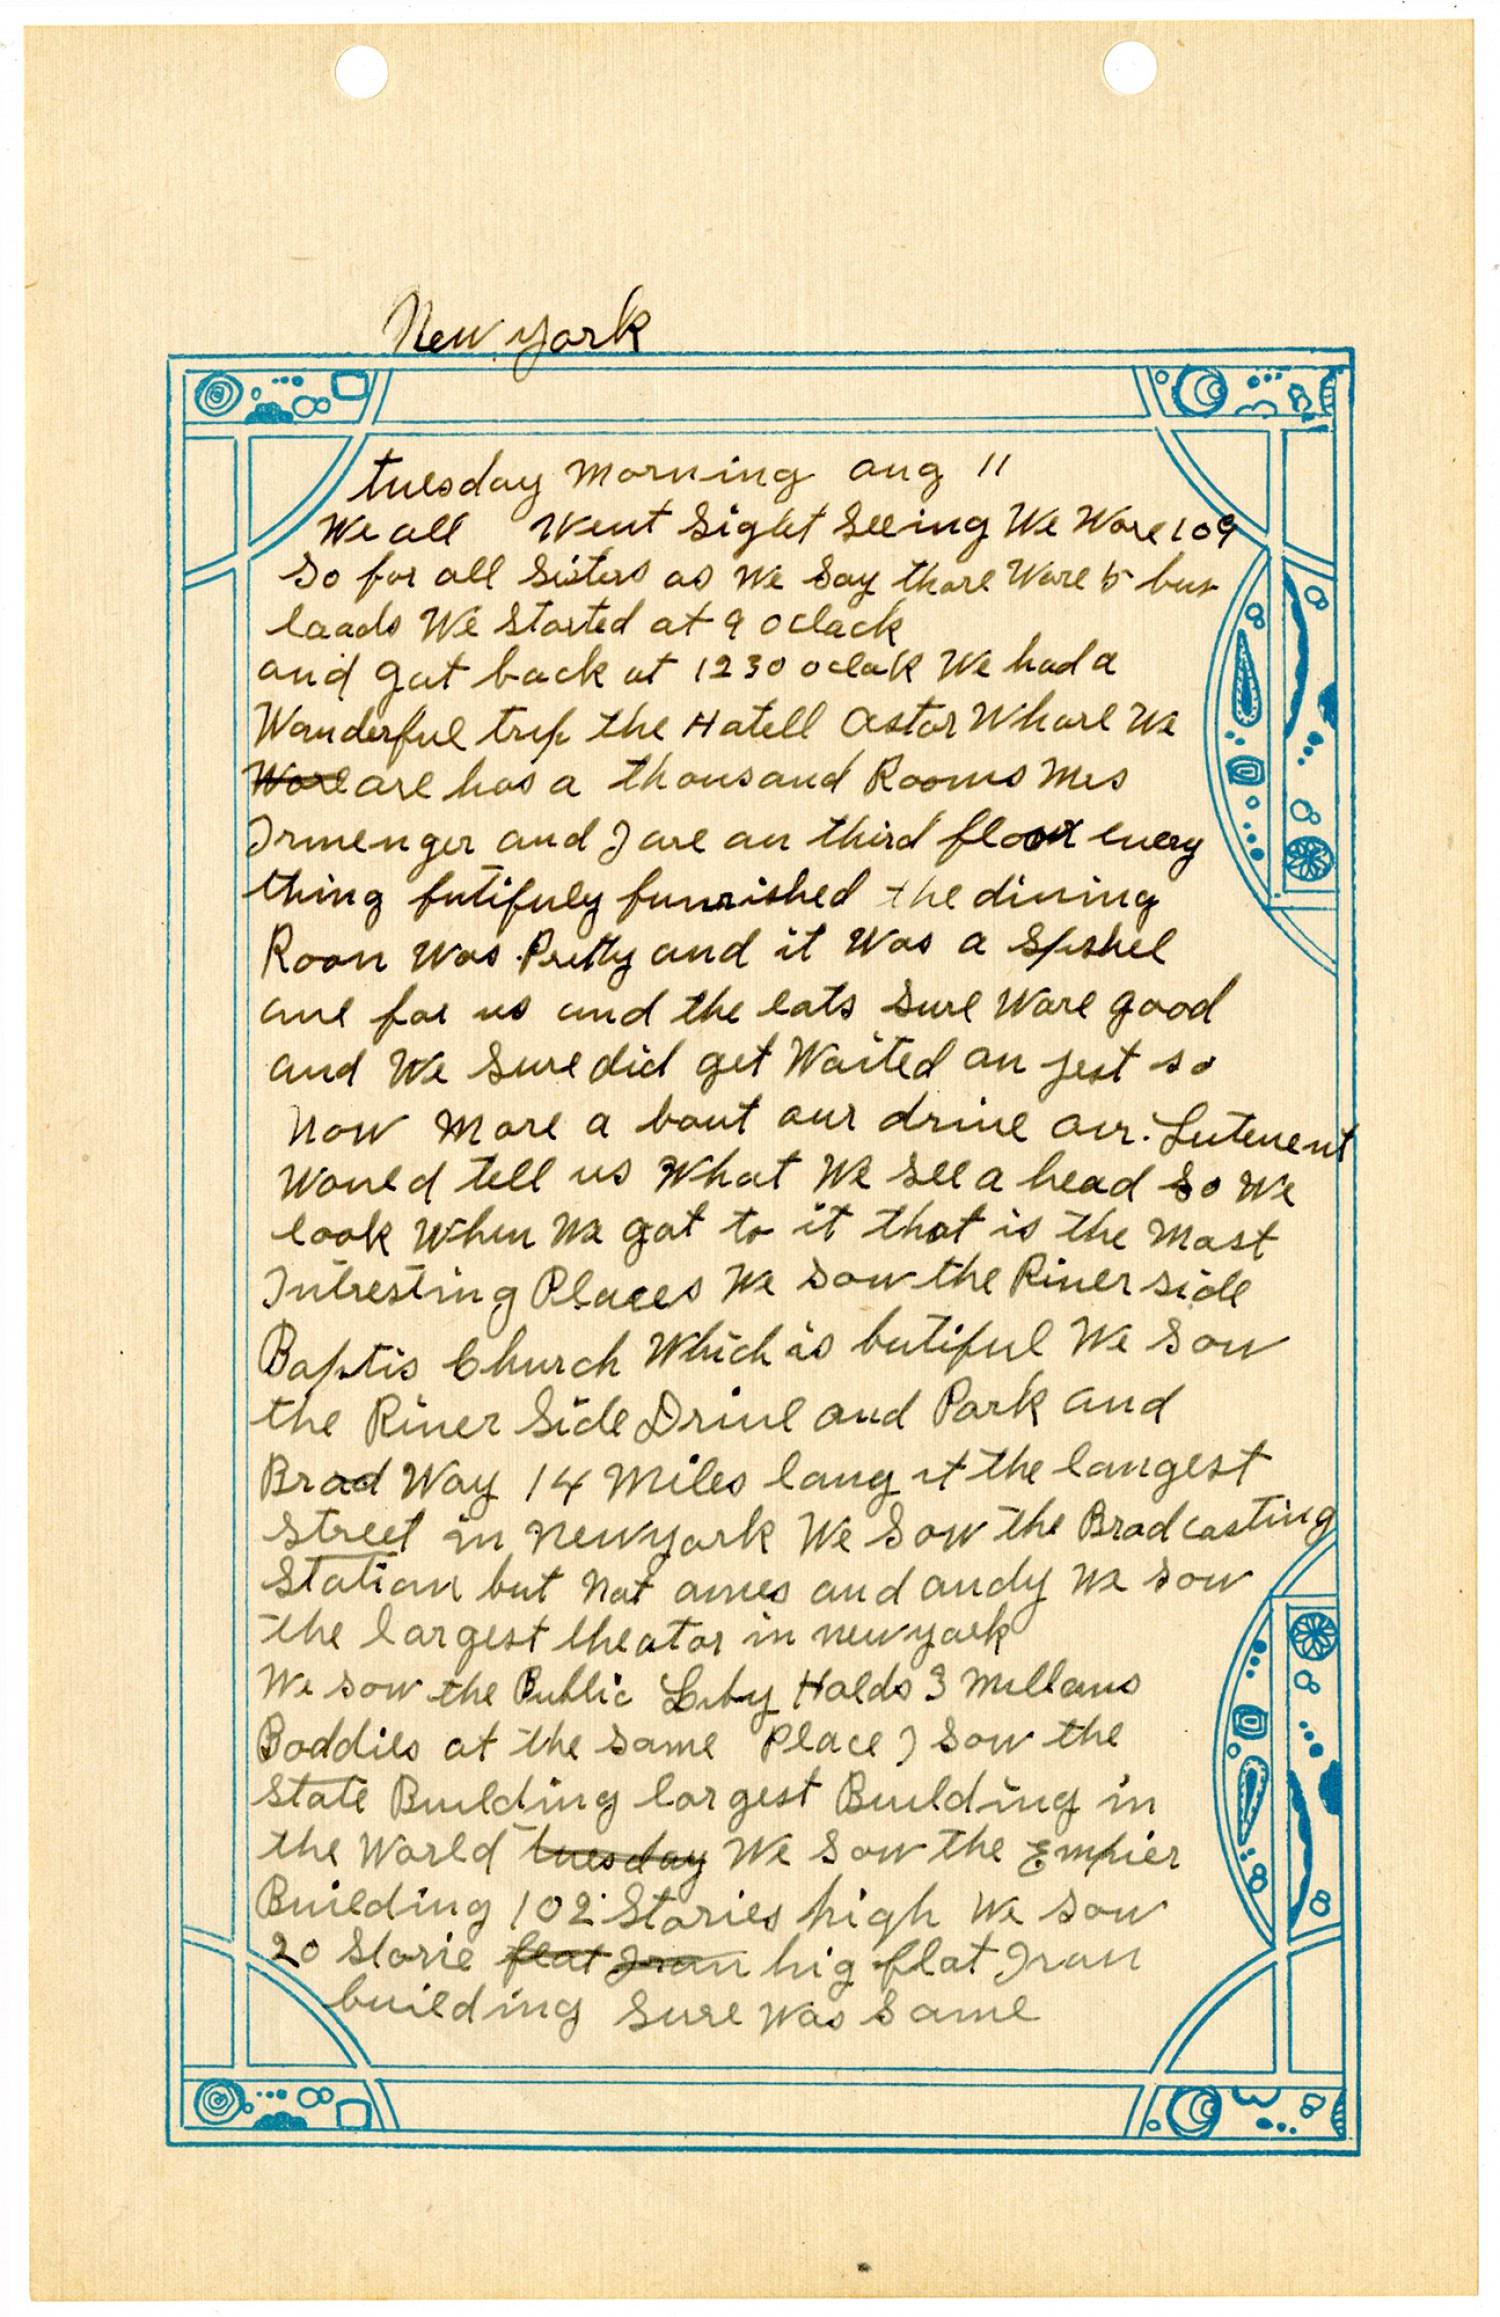 New york
tuesday morning aug 11
We all Went Sight Seeing We Ware 109
So for all Sisters as We Say thare Ware 5 bus
loads We Started at 9 oclack
and gat back at 1230 oclak We had a
Wanderful trip the Hatell Astor Whare We
Ware are has a thousand Rooms Mrs
Irmenger and I are an third floor every
thing futifuly funrished the dining
Roon Was Pretty and it Was a Speshel
ane for us and the eats Sure Ware good
and We Sure did get Waited an jest so
Now More a bout our drive our Lutenent
Would tell us What We See a head So We
look When We gat to it that is the Mast
Intresting Places We Sow the River side
Baptis Church Which is butiful We Sow
the River Side Drive and Park and
Brad Way 14 Miles lang it the langest
Street in Newyark We Sow the Bradcasting
Station but Nat ames and andy We Sow
the largest theator in newyork
We Sow the Public Liby Halds 3 Millans
Boddies at the Same Place I Sow the
State Building largest Building in
the World tuesday We Sow the Empier
Building 102 Stories high We Sow
20 Storie flat Iran hig flat Iran
building Sure Was Same